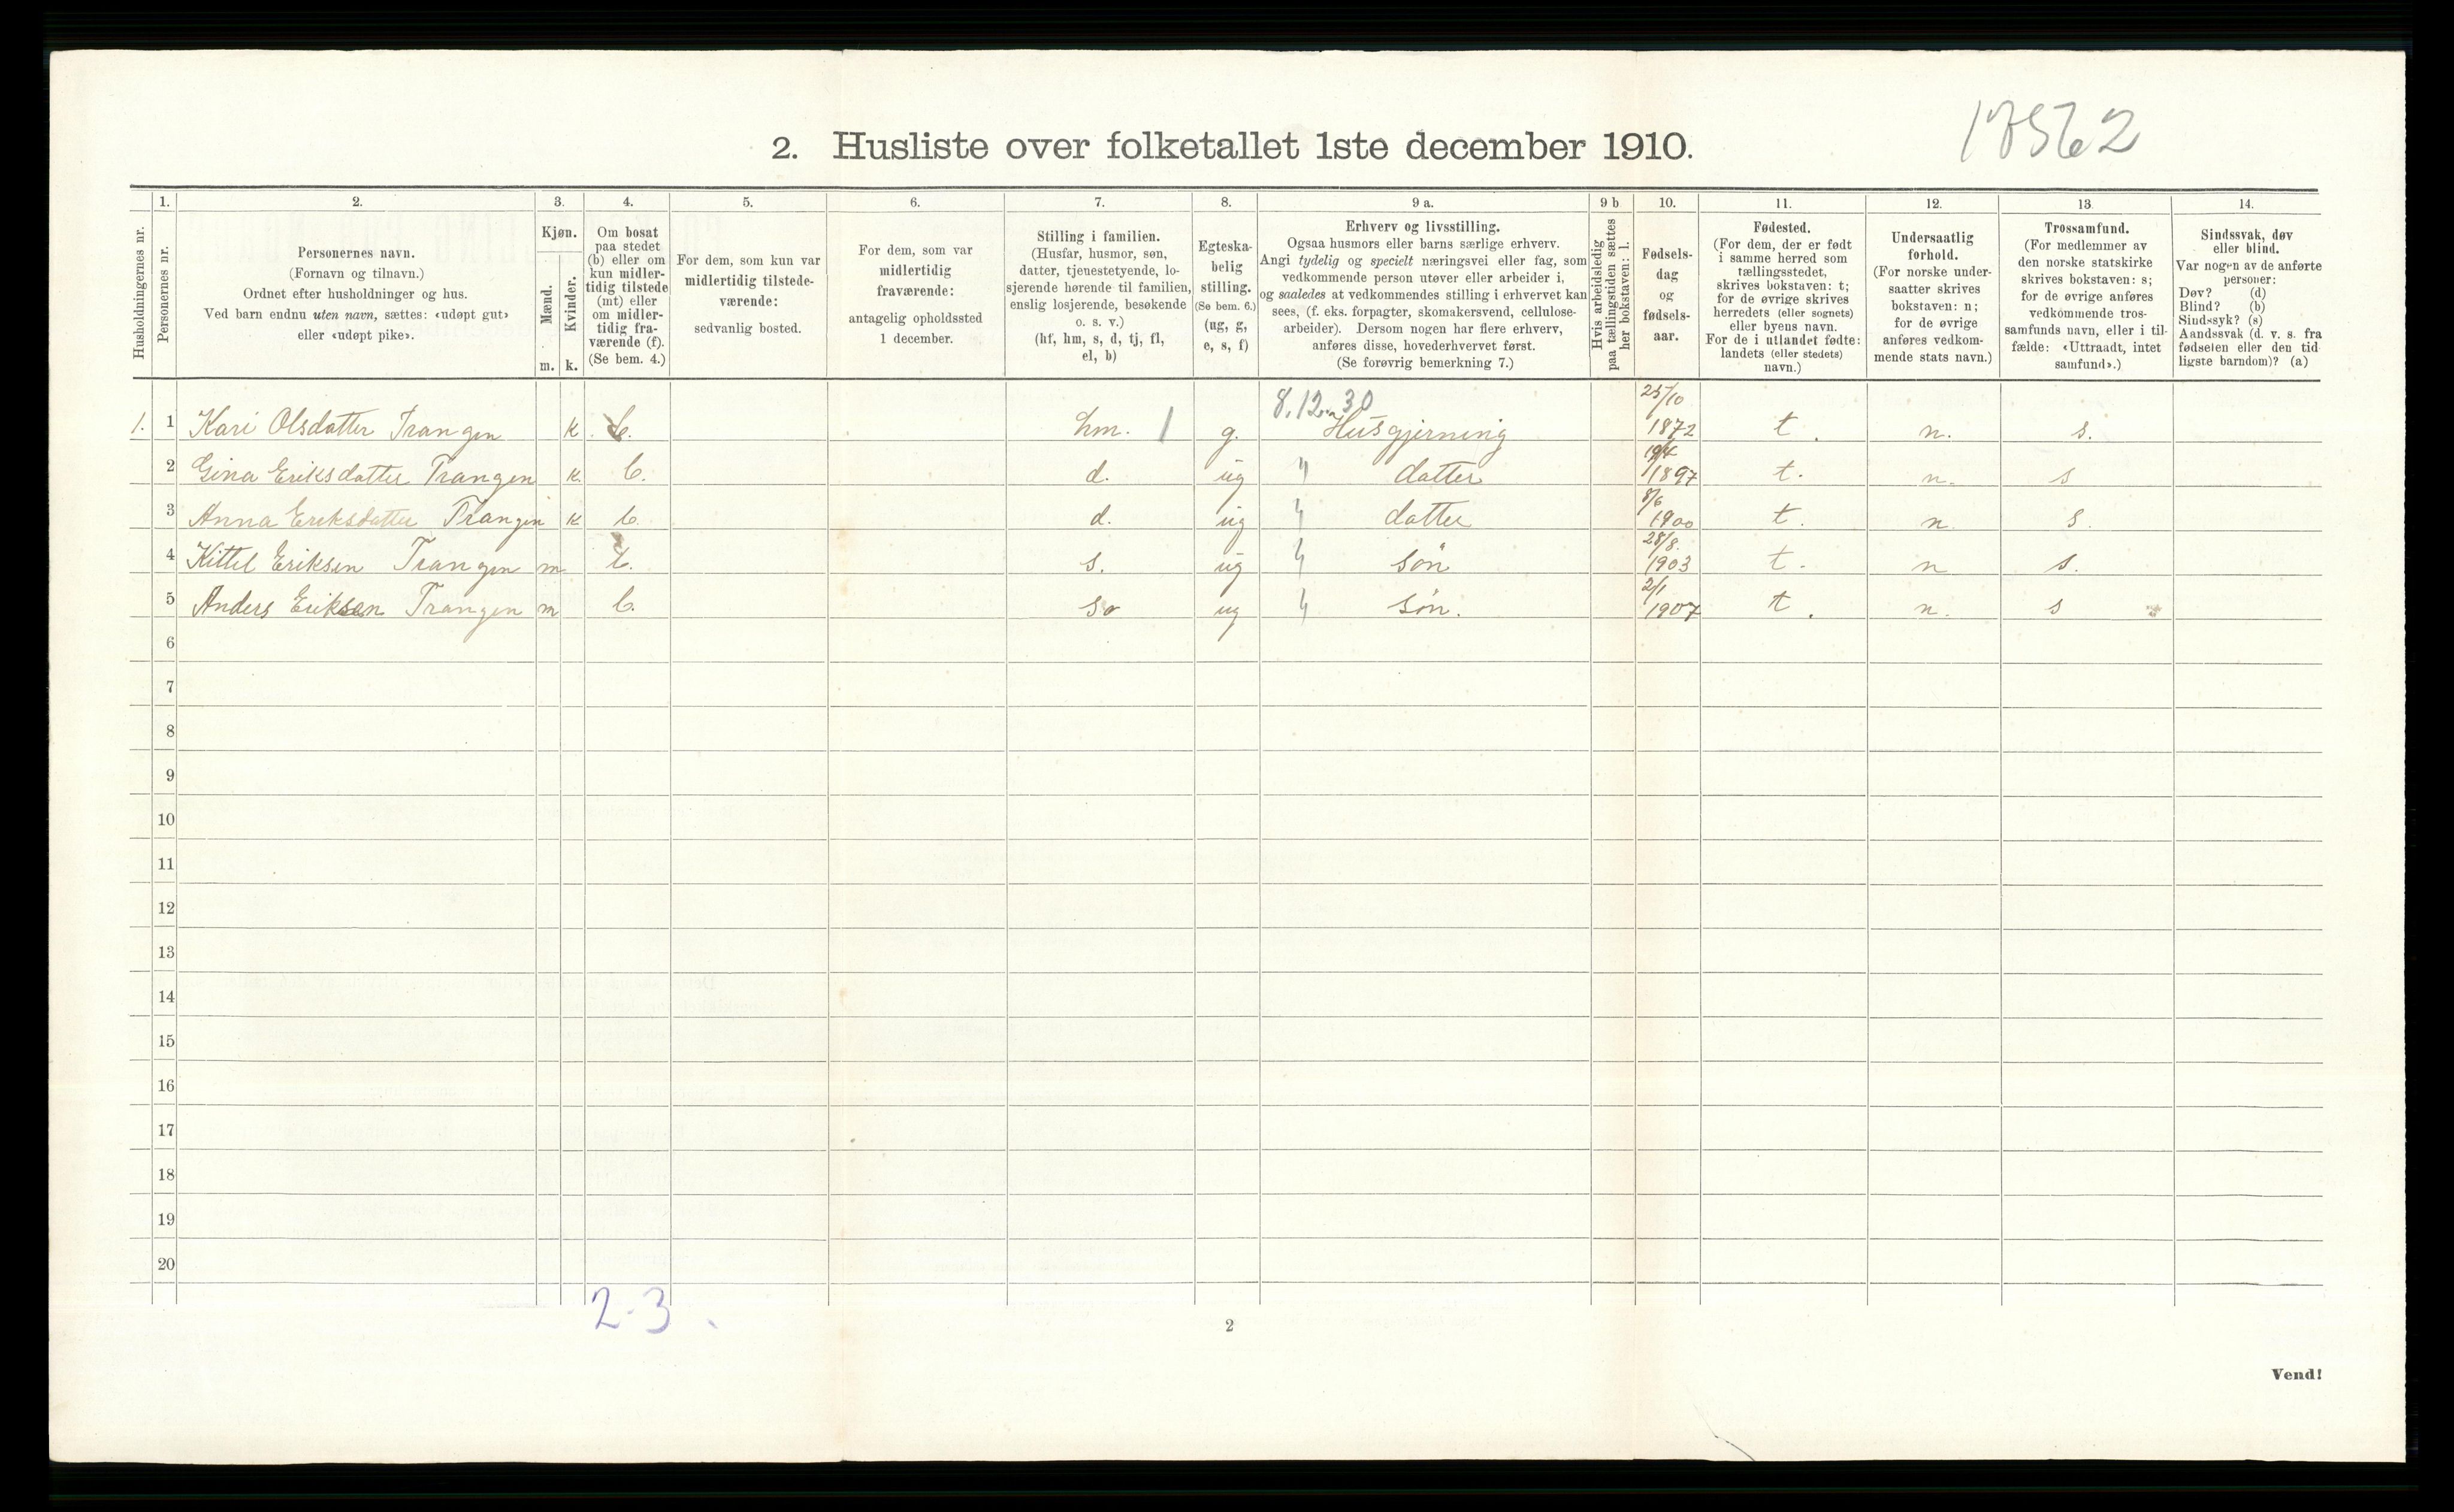 17562
2. Husliste over folketallet 1ste december 1910.
Husholdningernes nr.
1.
Personernes nr.
2.
Personernes navn.
(Fornavn og tilnavn.)
Ordnet efter husholdninger og hus.
Ved barn endnu uten navn, sættes: «udøpt gut»
eller «udøpt pike».
3.
Kjøn.
Mænd.
Kvinder.
m. k.
4.
Om bosat
paa stedet
(b) eller om
kun midler-
tidig tilstede
(mt) eller
om midler-
tidig fra-
værende (f).
(Se bem. 4.)
5.
For dem, som kun var
midlertidig tilstede-
værende:
sedvanlig bosted.
6.
For dem, som var
midlertidig
fraværende:
antagelig opholdssted
1 december.
7.
Stilling i familien.
(Husfar, husmor, søn,
datter, tjenestetyende, lo-
sjerende hørende til familien,
enslig losjerende, besøkende
o. s. v.)
(hf, hm, s, d, tj, fl,
el, b)
8.
Egteska-
belig
stilling.
(Se bem. 6.)
(ug, g,
e, s, f)
9 a.
Erhverv og livsstilling.
Ogsaa husmors eller barns særlige erhverv.
Angi tydelig og specielt næringsvei eller fag, som
vedkommende person utøver eller arbeider i,
og saaledes at vedkommendes stilling i erhvervet kan
sees, (f. eks. forpagter, skomakersvend, cellulose-
arbeider). Dersom nogen har flere erhverv,
anføres disse, hovederhvervet først.
(Se forøvrig bemerkning 7.)
9 b
Hvis arbeidsledig
paa tællingstiden sættes
her bokstaven: l.
10.
Fødsels-
dag
og
fødsels-
aar.
11.
Fødested.
(For dem, der er født
i samme herred som
tællingsstedet,
skrives bokstaven: t;
for de øvrige skrives
herredets (eller sognets)
eller byens navn.
For de i utlandet fødte:
landets (eller stedets)
navn.)
12.
Undersaatlig
forhold.
(For norske under-
saatter skrives
bokstaven: n;
for de øvrige
anføres vedkom-
mende stats navn.)
13.
Trossamfund.
(For medlemmer av
den norske statskirke
skrives bokstaven: s;
for de øvrige anføres
vedkommende tros-
samfunds navn, eller i til-
fælde: «Uttraadt, intet
samfund».)
14.
Sindssvak, døv
eller blind.
Var nogen av de anførte
personer:
Døv? (d)
Blind? (b)
Sindssyk? (s)
Aandssvak (d. v. s. fra
fødselen eller den tid-
ligste barndom)? (a)
8.12 30 25/10
1. 1 Kari Olsdatter Trangen k b. hm. 1 g. Husgjerning 1872 t. n. s.
2 Gina Eriksdatter Trangen k. b. d. ug datter 19/4 1897 t. n. s
3 Anna Eriksdatter Trangen k b. d. ug datter 8/6 1900 t. n. s.
4 Kittel Eriksen Trangen m b. s. ug søn 28/8. 1903 t. n s.
5 Anders Eriksen Trangen m b. s. ug søn. 2/1 1907 t. n. s
6
7
8
9
10
11
12
13
14
15
16
17
18
19
20
2-3
2
Vend!